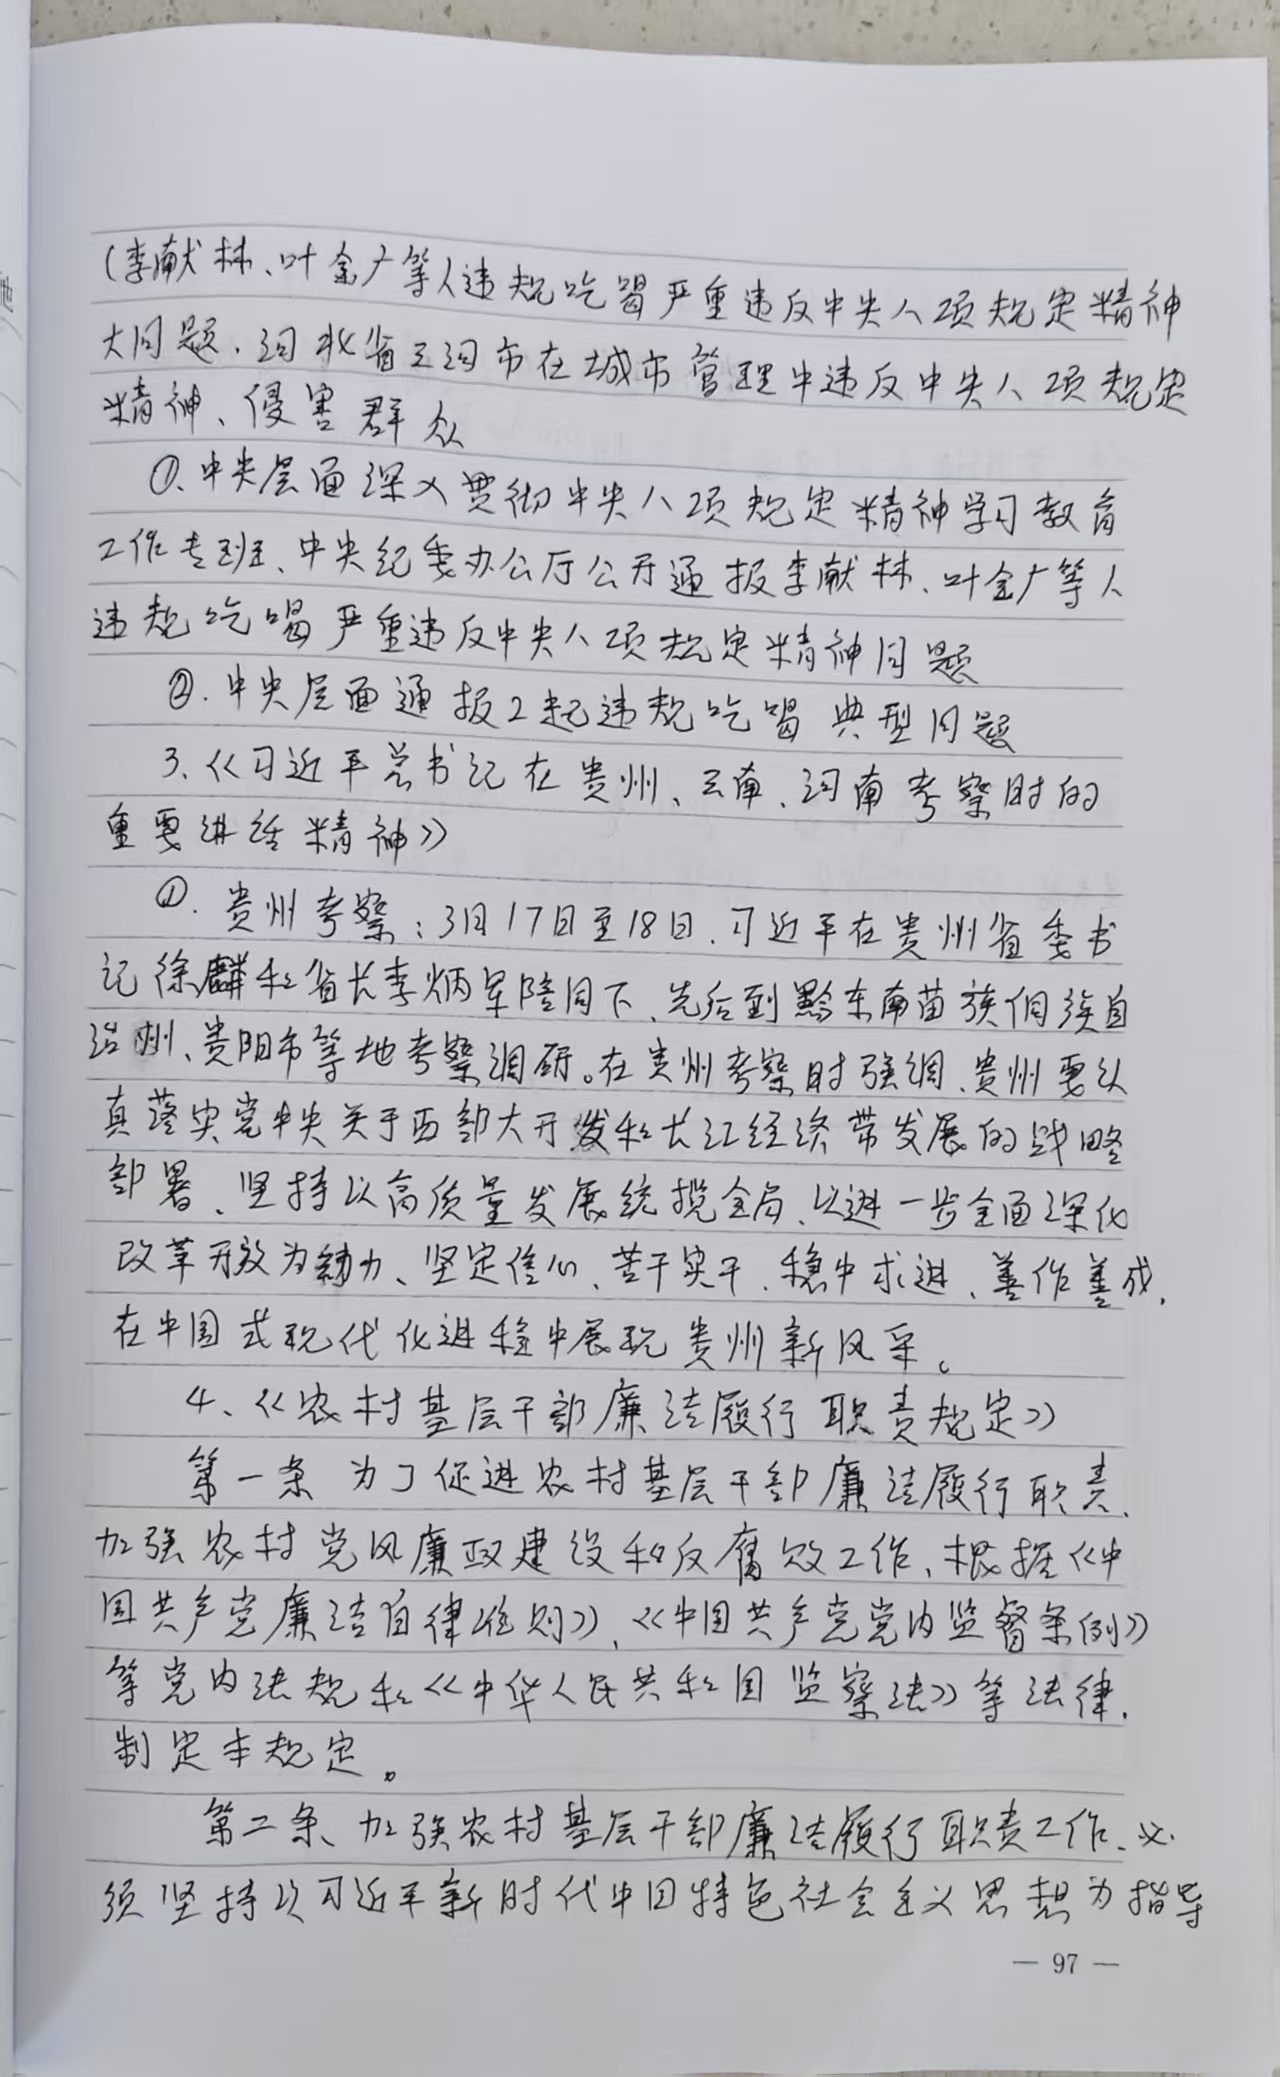 (李献林、叶金广等人违规吃喝严重违反中央八项规定精神
大问题、河北省三河市在城市管理中违反中央八项规定
精神、侵害群众
①、中央层面深入贯彻中央八项规定精神学习教育
工作专班、中央纪委办公厅公开通报李献林、叶金广等人
违规吃喝严重违反中央八项规定精神问题
②.中央层面通报2起违规吃喝典型问题
3、《习近平总书记在贵州、云南、河南考察时的
重要讲话精神》
①.贵州考察:3月17日至18日、习近平在贵州省委书
记徐麟和省长李炳军陪同下、先后到黔东南苗族侗族自
治州、贵阳市等地考察调研。在贵州考察时强调、贵州要认
真落实党中央关于西部大开发和长江经济带发展的战略
部署、坚持以高质量发展统揽全局、以进一步全面深化
改革开放为动力、坚定信心、苦干实干、稳中求进、善作善成、
在中国式现代化进程中展现贵州新风采。
4、《农村基层干部廉洁履行职责规定》
第一条 为了促进农村基层干部廉洁履行职责、
加强农村党风廉政建设和反腐败工作、根据《中
国共产党廉洁自律准则》、《中国共产党党内监督条例》
等党内法规和《中华人民共和国监察法》等法律、
制定本规定。
第二条、加强农村基层干部廉洁履行职责工作、必
须坚持以习近平新时代中国特色社会主义思想为指导
— 97 —